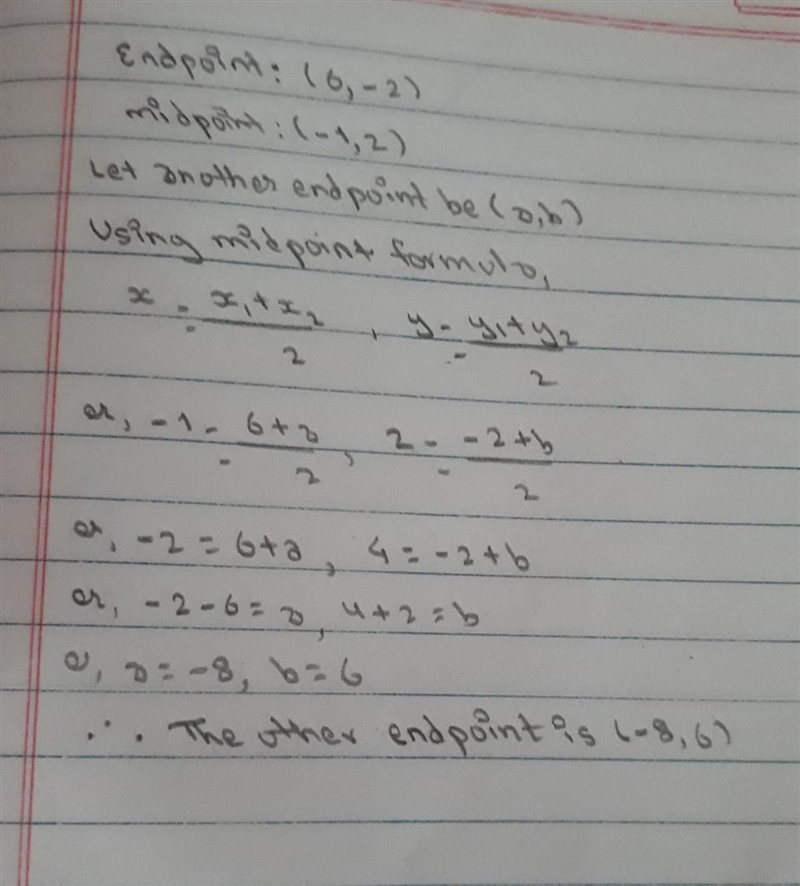 Endpoint: (6, -2)
midpoint: (-1, 2)
Let another endpoint be (a, b)
Using midpoint formula,
x = x₁ + x₂ / 2 , y = y₁ + y₂ / 2
or, -1 = 6 + a / 2 , 2 = -2 + b / 2
or, -2 = 6 + a , 4 = -2 + b
or, -2 - 6 = a , 4 + 2 = b
or, a = -8, b = 6
∴ The other endpoint is (-8, 6)